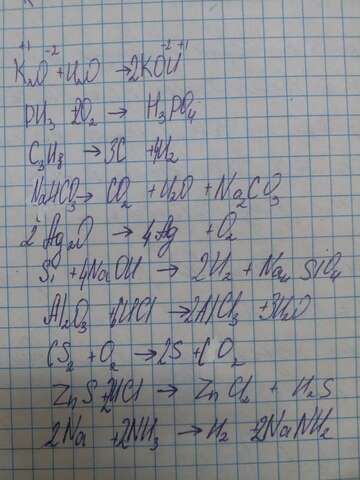 +1 -2 -2 +1
K₂O + H₂O → 2KOH
PH₃ 2O₂ → H₃PO₄
C₃H₈ → 3C + 4H₂
NaHCO₃ → CO₂ + H₂O + Na₂CO₃
2Ag₂O → 4Ag + O₂
Si + 4NaOH → 2H₂ + Na₄SiO₄
Al₂O₃ + 6HCl → 2AlCl₃ + 3H₂O
CS₂ + O₂ → 2S + CO₂
ZnS + 2HCl → ZnCl₂ + H₂S
2Na + 2NH₃ → H₂ + 2NaNH₂